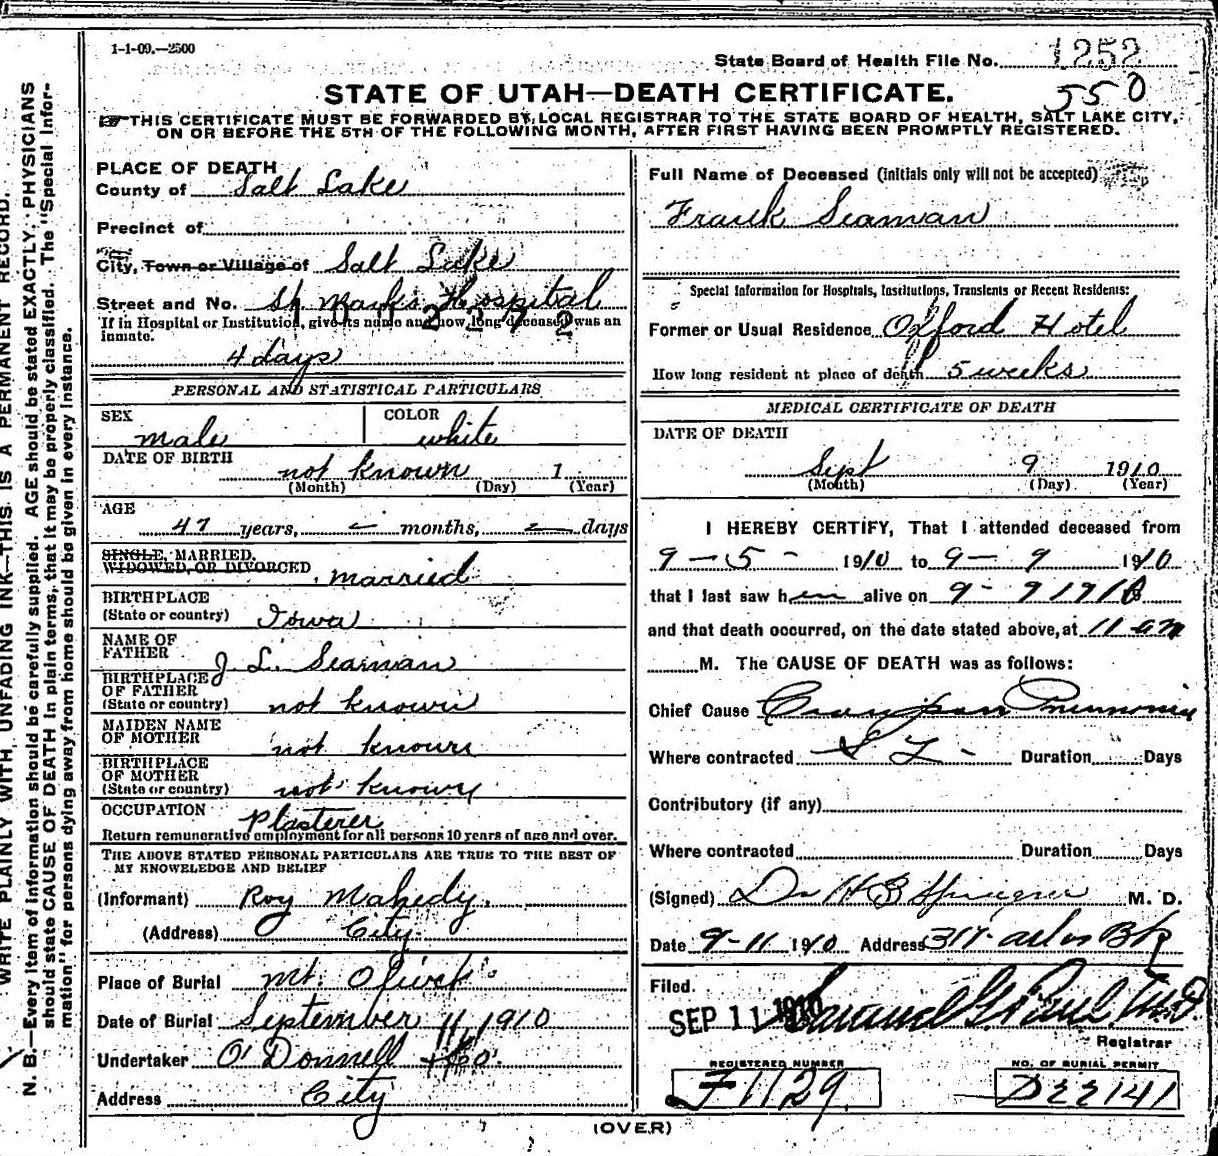 1-1-09.—2500
State Board of Health File No. 1252
550
STATE OF UTAH—DEATH CERTIFICATE.
THIS CERTIFICATE MUST BE FORWARDED BY LOCAL REGISTRAR TO THE STATE BOARD OF HEALTH, SALT LAKE CITY,
ON OR BEFORE THE 5TH OF THE FOLLOWING MONTH, AFTER FIRST HAVING BEEN PROMPTLY REGISTERED.
WRITE PLAINLY WITH UNFADING INK—THIS IS A PERMANENT RECORD.
N. B.—Every item of information should be carefully supplied. AGE should be stated EXACTLY. PHYSICIANS
should state CAUSE OF DEATH in plain terms, that it may be properly classified. The "Special Infor-
mation" for persons dying away from home should be given in every instance.
PLACE OF DEATH
County of Salt Lake
Precinct of
City, Town or Village of Salt Lake
Street and No. St Mark's Hospital
If in Hospital or Institution, give its name and how long deceased was an
inmate.
4 days
PERSONAL AND STATISTICAL PARTICULARS
SEX male
COLOR white
DATE OF BIRTH not known 1
(Month) (Day) (Year)
AGE
47 years, months, days
SINGLE, MARRIED,
WIDOWED, OR DIVORCED married
BIRTHPLACE
(State or country) Iowa
NAME OF
FATHER J. L. Seaman
BIRTHPLACE
OF FATHER
(State or country) not known
MAIDEN NAME
OF MOTHER not known
BIRTHPLACE
OF MOTHER
(State or country) not known
OCCUPATION Plasterer
Return remunerative employment for all persons 10 years of age and over.
THE ABOVE STATED PERSONAL PARTICULARS ARE TRUE TO THE BEST OF
MY KNOWLEDGE AND BELIEF
(Informant) Roy Mahedy.
(Address) City.
Place of Burial Mt. Olivet
Date of Burial September 11, 1910
Undertaker O'Donnell & Co.
Address City
Full Name of Deceased (initials only will not be accepted)
Frank Seaman
Special Information for Hospitals, Institutions, Transients or Recent Residents:
Former or Usual Residence Oxford Hotel
How long resident at place of death 5 weeks
MEDICAL CERTIFICATE OF DEATH
DATE OF DEATH
Sept 9 1910
(Month) (Day) (Year)
I HEREBY CERTIFY, That I attended deceased from
9-5- 1910 to 9-9 1910
that I last saw him alive on 9-9 1910
and that death occurred, on the date stated above, at 11 am
M. The CAUSE OF DEATH was as follows:
Chief Cause Pneumonia
Where contracted S L - Duration Days
Contributory (if any)
Where contracted Duration Days
(Signed) Dr H B Sprague M. D.
Date 9-11 1910 Address 317 Bk
Filed.
SEP 11 1910 Samuel G. Paul, M.D.
Registrar
REGISTERED NUMBER
F1129
NO. OF BURIAL PERMIT
D22141
(OVER)